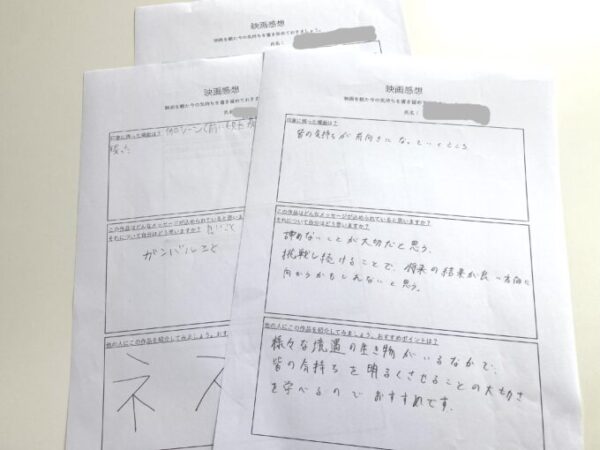 映画感想
映画を観た今の気持ちを書き留めておきましょう。
氏名：
映画感想
映画を観た今の気持ちを書き留めておきま
氏名
印象に残った場面は？
この作品はどんなメッセージが込められていると思いま
それについて自分はどう思いますか？
ガンバルこと
他の人にこの作品を紹介してみましょう。おすす
ネ
映画感想
映画を観た今の気持ちを書き留め
氏名：
印象に残った場面は？
皆の気持ちが前向きになっていくところ
この作品はどんなメッセージが込められていると思いますか？
それについて自分はどう思いますか？
諦めないことが大切だと思う。
挑戦し続けることで、将来の結果が良い方向に
向かうかもしれないと思う。
他の人にこの作品を紹介してみましょう。おすすめポイントは？
様々な境遇の生き物がいるなかで、
皆の気持ちを明るくさせることの大切さ
を学べるのでおすすめです。